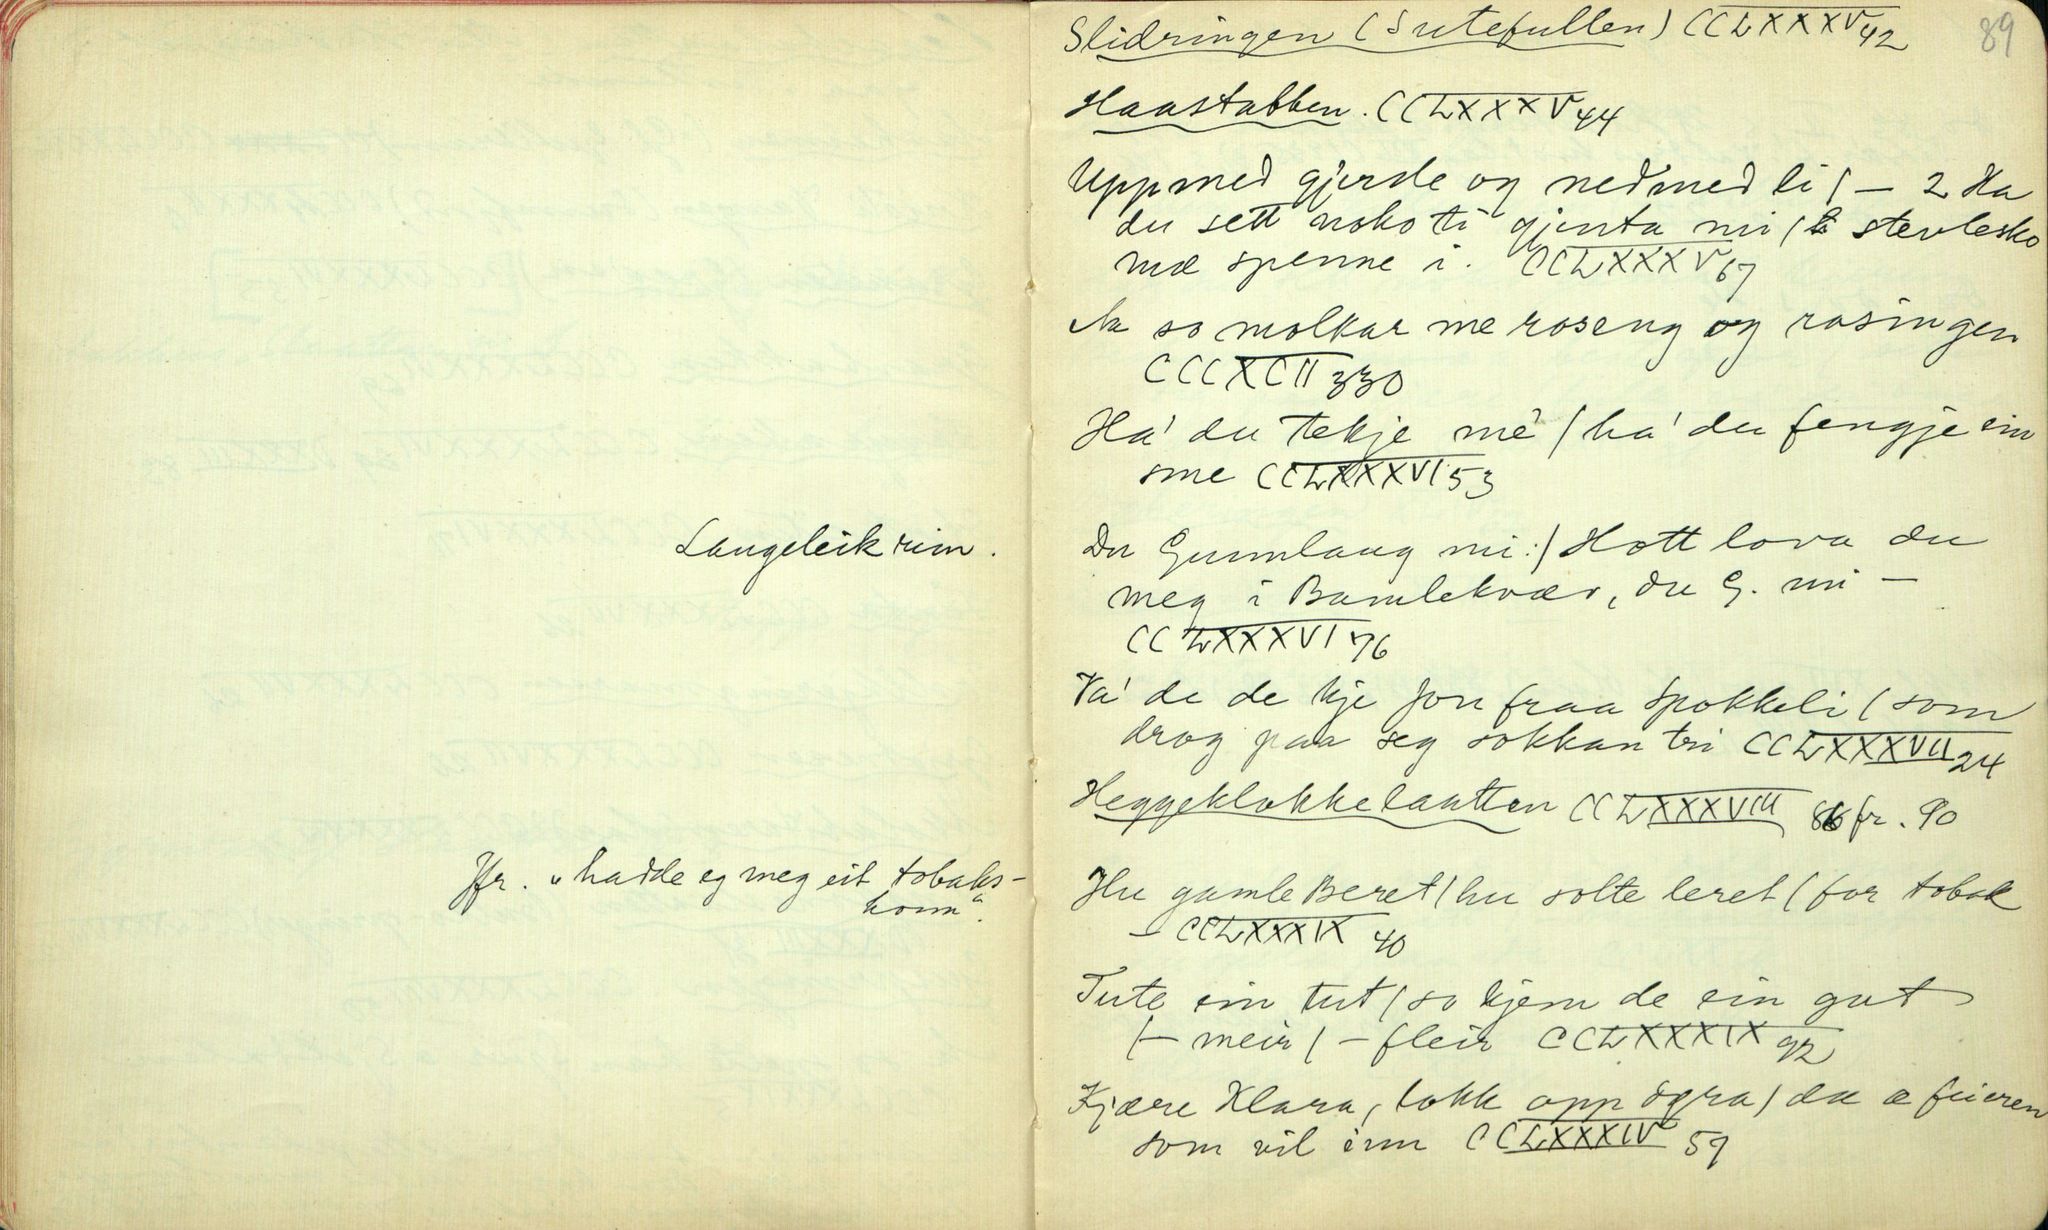 Langeleik rim.
Jfr. "hadde eg meg eit tobaks-
horn".
89
Slidringen (Sutefullen) CCLXXXV 42
Haastabben. CCLXXXV 44
Uppmed gjerde og nedmed li / — 2 Ha
du sett noko ti gjenta mi / stevlesko
mæ spenne i. CCLXXXV 67
so molkar me roseng og rosingen
CCCXCII 330
Ha' du tekje me / ha' du fengje ein
sme CCLXXXVI 53
Du Gunnlaug mi :/ Hott lova du
meg i Bamlekvær, du G. mi —
CCLXXXVI 76
Va' de de kje Jon fraa Spokkeli / som
drog paa seg sokkan tri CCLXXXVII 24
Heggeklokkelaatten CCLXXXVIII 86 fr. 90
Hu gamle Beret / hu solte leret / for tobak
— CCLXXXIX 40
Tute ein tut / so kjem de ein gut
/— meir / — fleir CCLXXXIX 92
Kjære Klara, lokk opp døra / da æ feieren
som vil inn CCLXXXIV 59